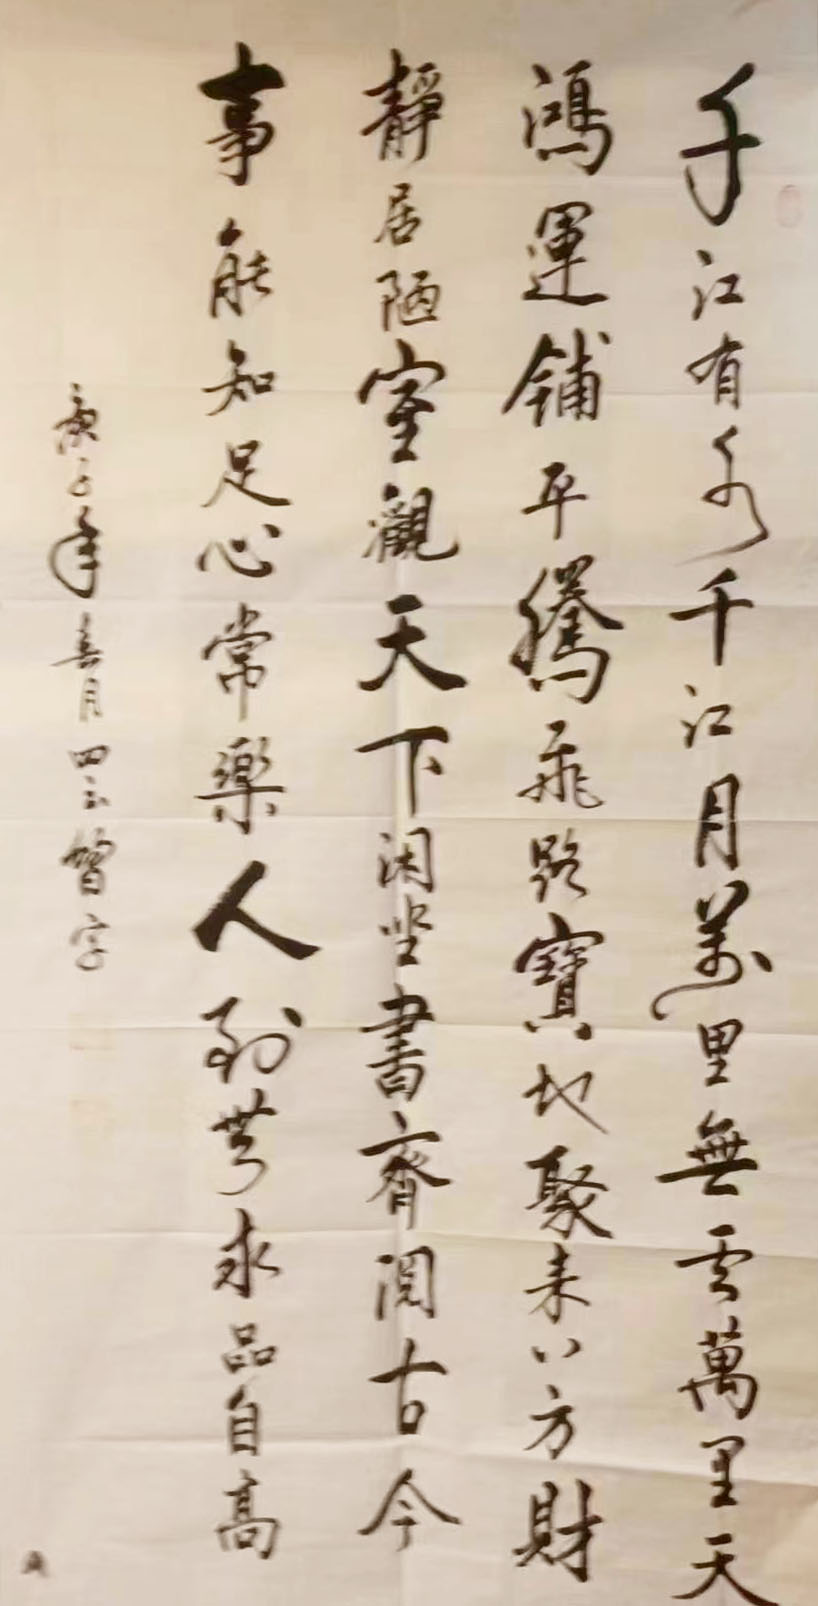 千江有水千江月萬里無雲萬里天
鴻運鋪平騰飛路寶地聚来八方財
靜居陋室觀天下闲坐書齋阅古今
事能知足心常樂人到無求品自高
庚子年春月四云習字